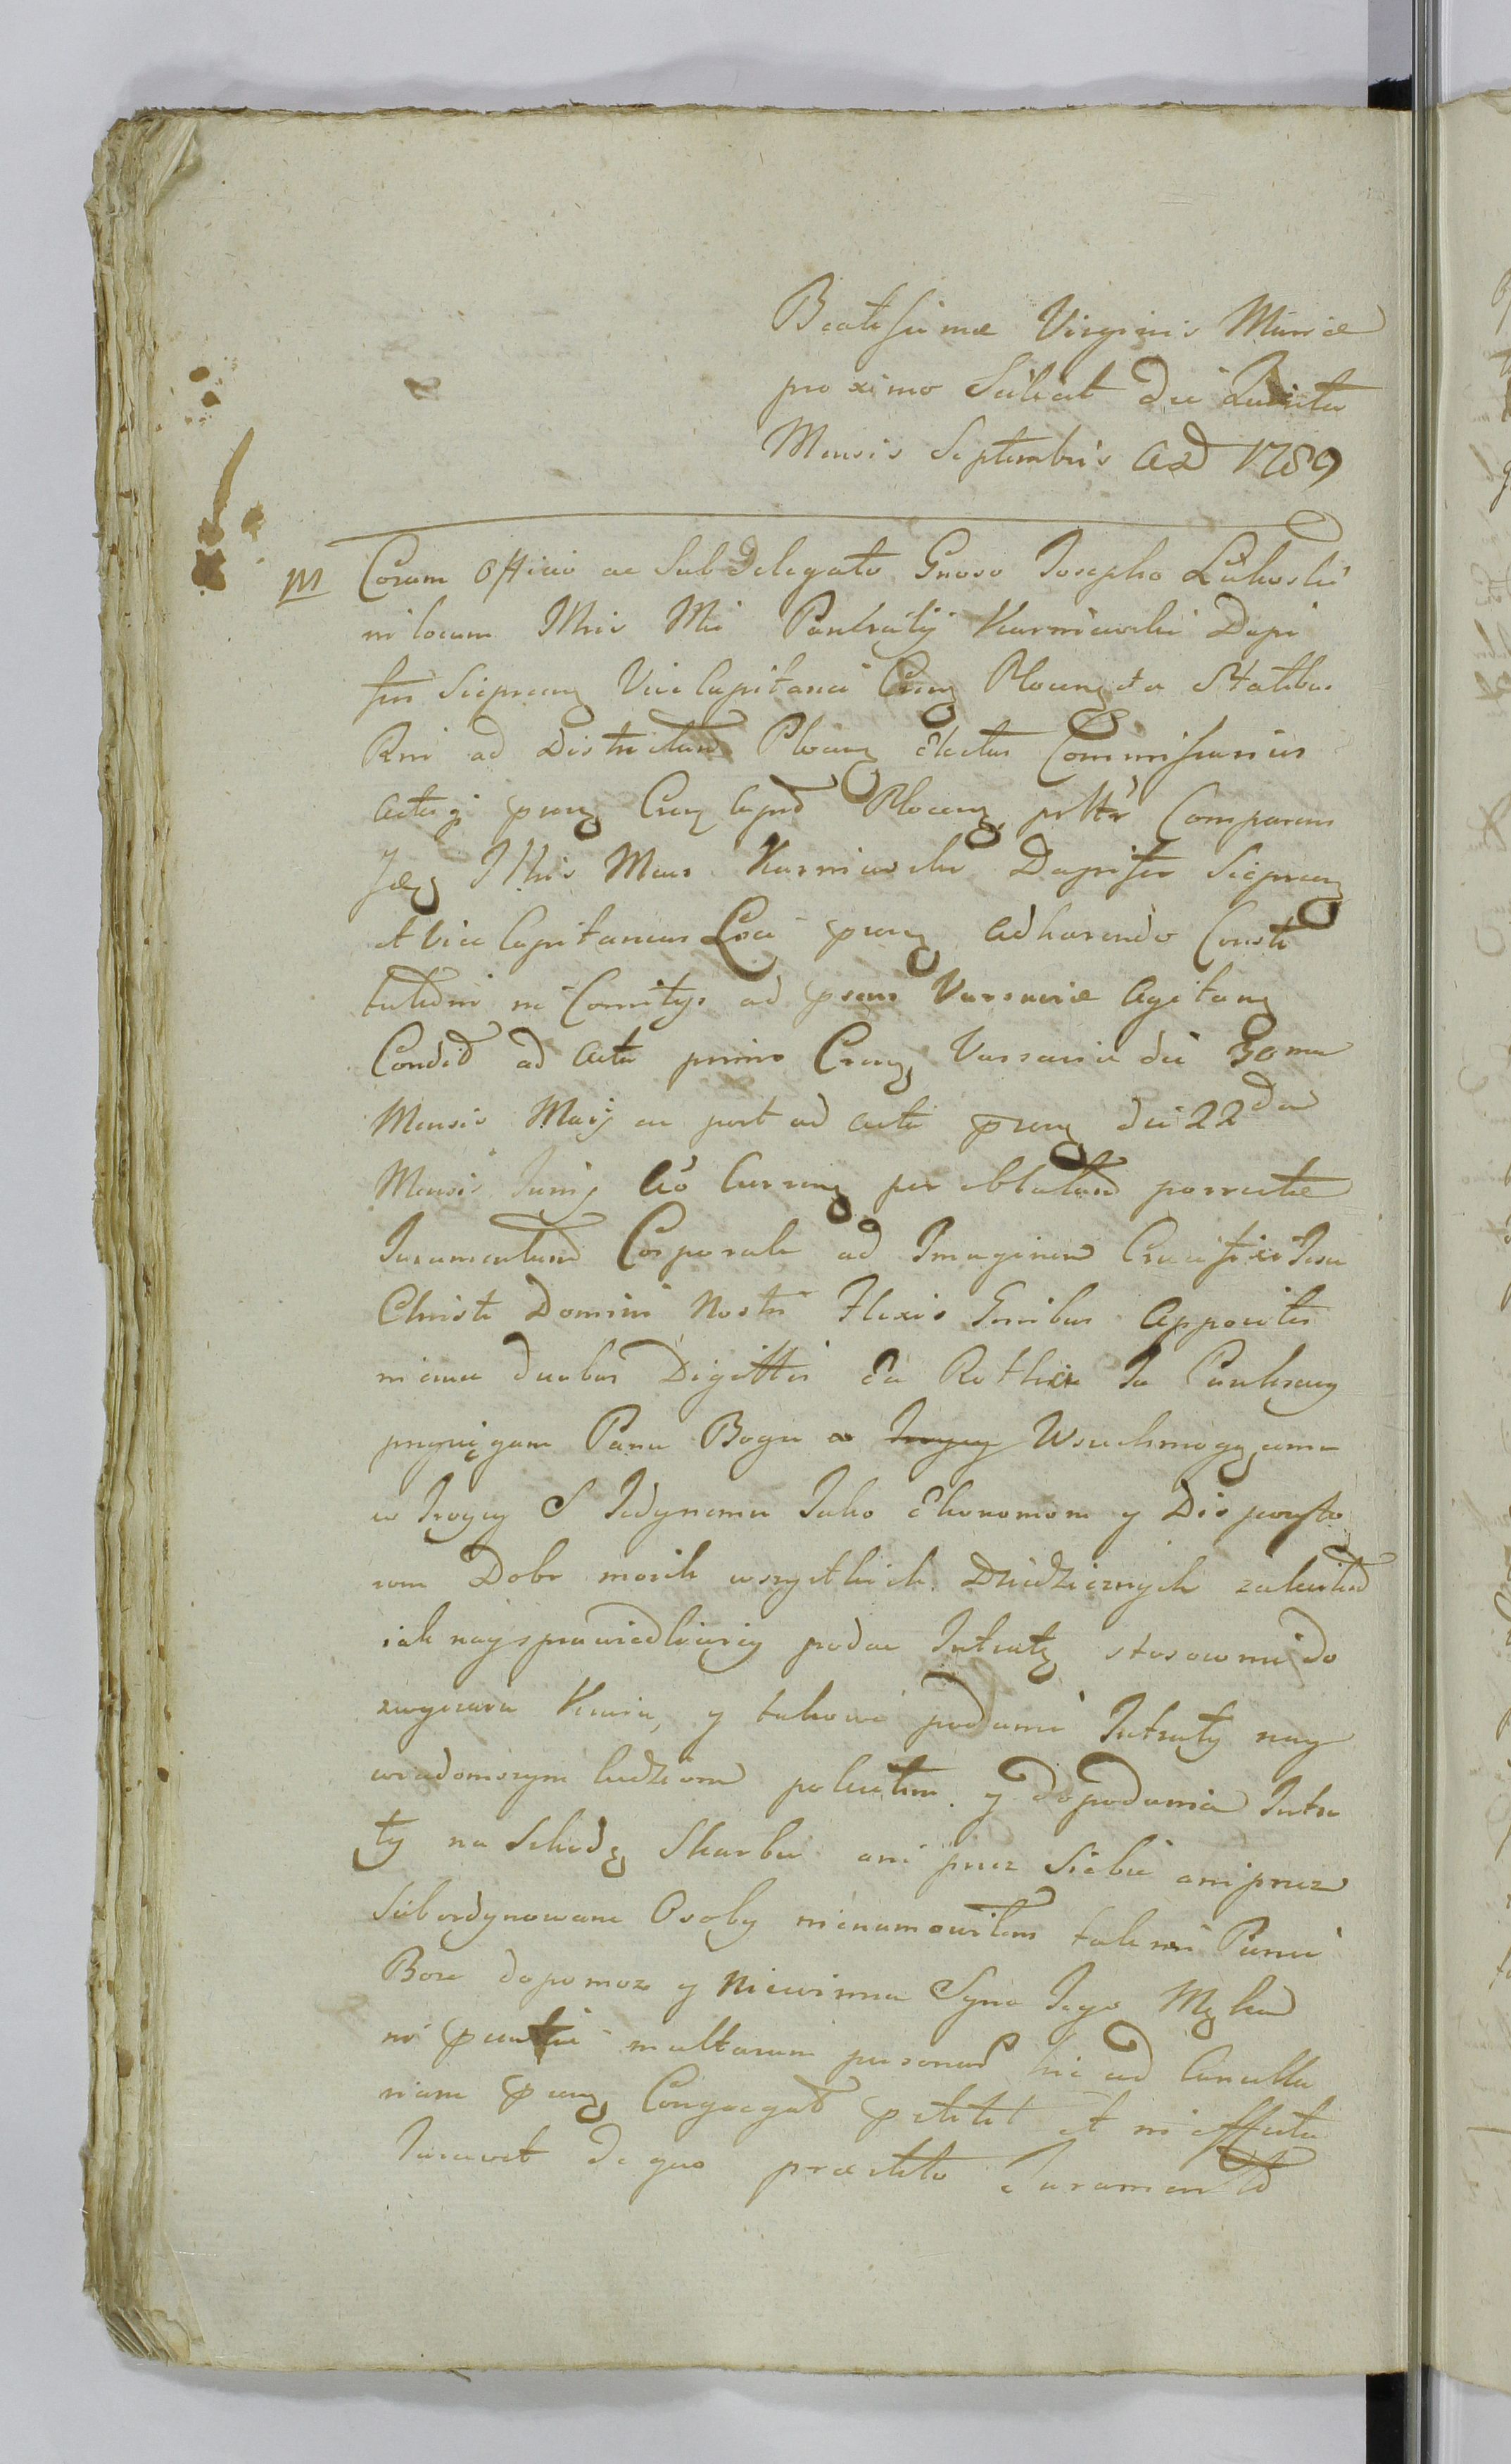 Beatissimæ Virginis Mariæ
proximo Scilicet die Quinta
Mensis Septembris AD 1789
M Coram Officio ac Subdelegato Gnoso Josepho Łukoski
in locum Mci Pankratij Karniewski Dapi
feri Sieprcen Vice Capitanei Cren Plocen et a Statibus
Rni ad Districtum Plocen Electus Commissarius
Actisq pnng Cren Capud Plocen psltr Comparens
Idem Mcus Karniewski Dapifer Sieprcen
et Vice Capitaneus Loci pnng adhærendo Consti
tutioni in Comitys ad pnns Varsaviæ Agitan
Condit ad acta primo Cren Varsavien die 30ma
Mensis Maij ac post ad acta pnng die 22da
Mensis Junij Ao Curren per oblatam porrectæ
Juramentum Corporale ad Imaginem Crucifixi Jesu
Christi Domini Nostri Flexis Genibus Appositis
manu duobus Digittis Ea Rotha Ja Pankracy
przysięgam Panu Bogu w Troycy Wszechmogącemu
w Troycy S Jedynemu Jako Ekonomom y Dispozyto
rom Dobr moich wszystkich Dziedzicznych zaleciłem
iak naysprawiedliwiey podać Intratę stosownie do
zwyczaiu Kraiu, y takowe podanie Intraty nay
wiadomszym ludziom poleciłem y do podania Intra
ty na Szkodę Skarbu ani przez Siebie ani przez
Subordynowane Osoby nienamowiłem tak mi Panie
Boże dopomoz y Niewinna Syna Jego Męka
in pntia multarum personar hic ad Cancella
riam pnng Congregat pstitit et in effectu
Juravit de quo præstito Juramento